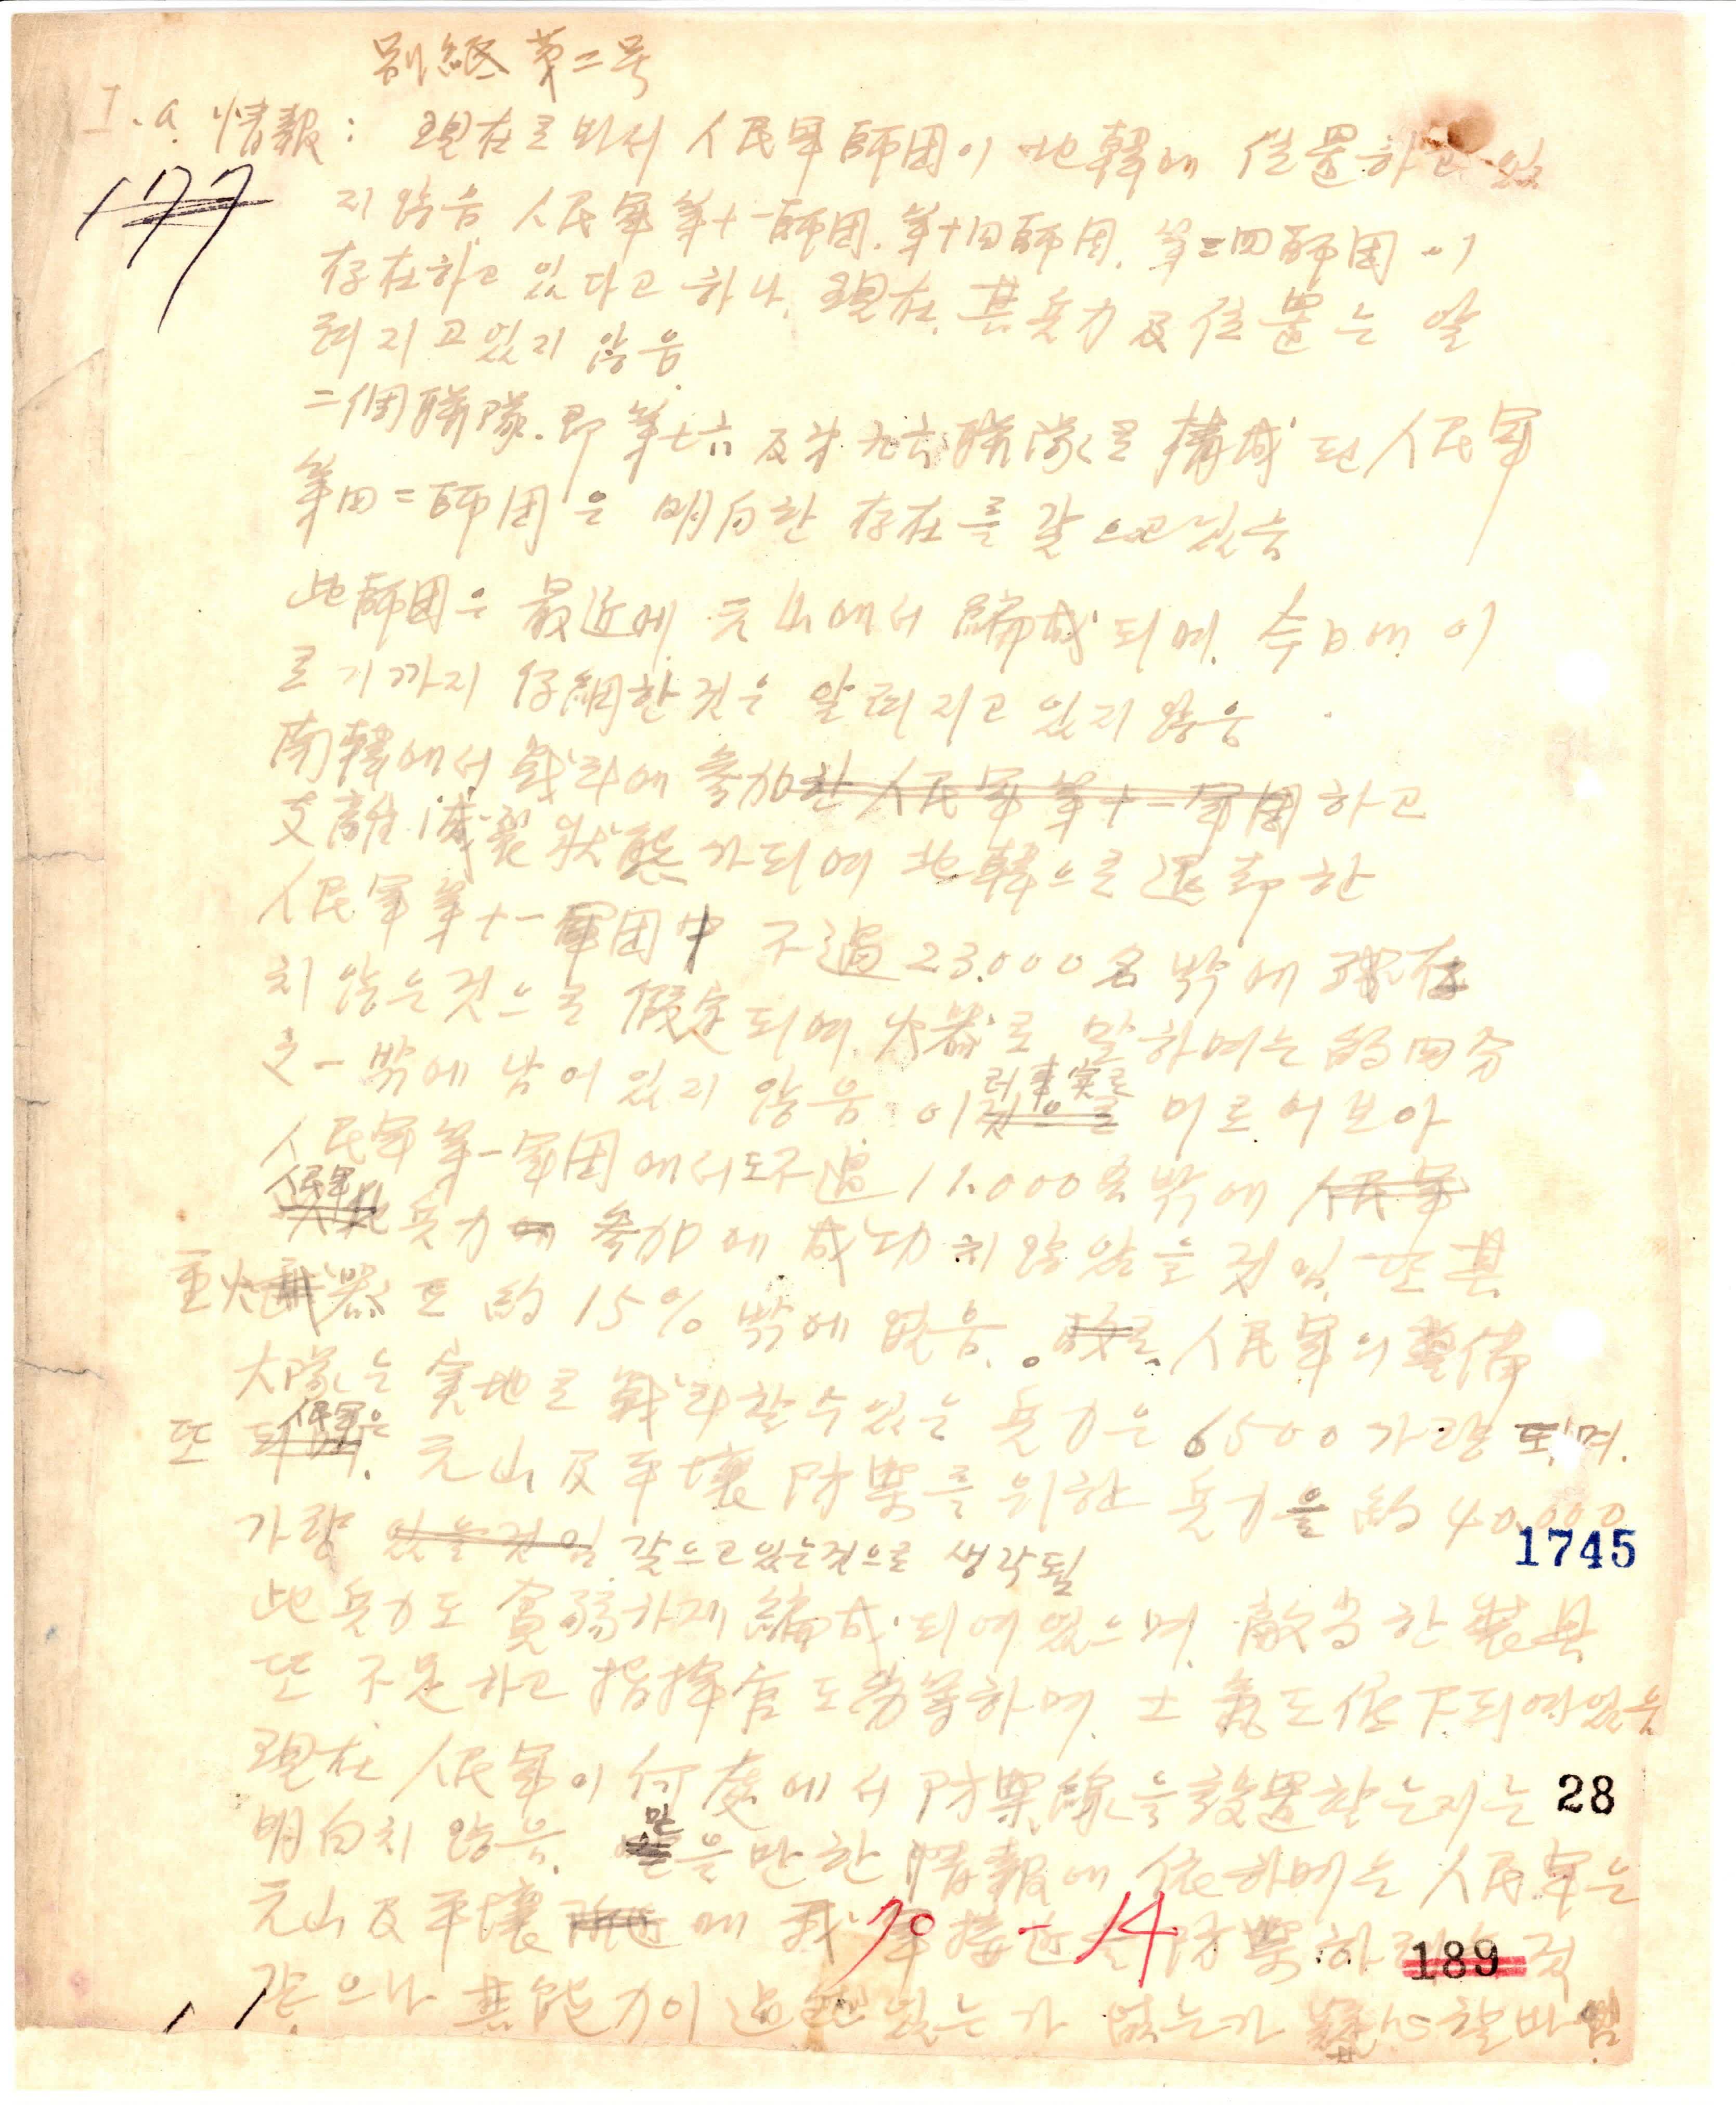 別紙 第二号
I. a. 情報: 現在로봐서 人民軍師団이 北韓에 位置하고 있
177
지않음 人民軍 第十一師団. 第十四師団. 第二四師団이
存在하고 있다고 하나. 現在. 其兵力 及 位置는 알
려지고있지 않음
二個聯隊. 即 第七六 及 第九六 聯隊로 構成된 人民軍
第四二師団은 明白한 存在를 갖으고있음
此師団은 最近에 元山에서 編成되며. 今日에 이
르기까지 仔細한것은 알려지고 있지않음
南韓에서 戦斗에 參加한 人民軍 第十一軍団 하고
支離滅裂 狀態가되여 北韓으로 退却한
人民軍 第十一軍団中 不過 23.000名 밖에 殘存
치 않은것으로 假定되며. 火器로 말하며는 約四分
之一 밖에 남어 있지 않음 이것으로 미르어보아
러事実로
人民軍 第一軍団에서도 不過 11.000名밖에 人民軍
人民軍
兵力에 參加에 成功치않았을 것임. 또 其
重火武器도 約 15% 밖에 없음. 故로. 人民軍의 警備
大隊는 実地로 戦斗할수있는 兵力은 6500 가량 되며.
人民軍은
또 元山 及 平壤 防禦를 위한 兵力을 約 40.000
가량 있는것임 갖으고있는것으로 생각됨
1745
此兵力도 貧弱하게 編成되여있으며. 敵当한 装具
또 不足하고 指揮官도 劣等하며. 士氣도 低下되여있음
現在 人民軍이 何處에서 防禦線을 設置할는지는
28
明白치 않음. 믿을만한 情報에 依하며는 人民軍은
元山 及 平壤 附近에 我軍接近을 防禦하 것
70 - 14
189
같으나 其能力이 있는가 없는가 疑心할바임